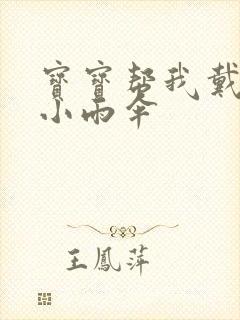 寶寶幫我戴
小雨伞
王鳳萍